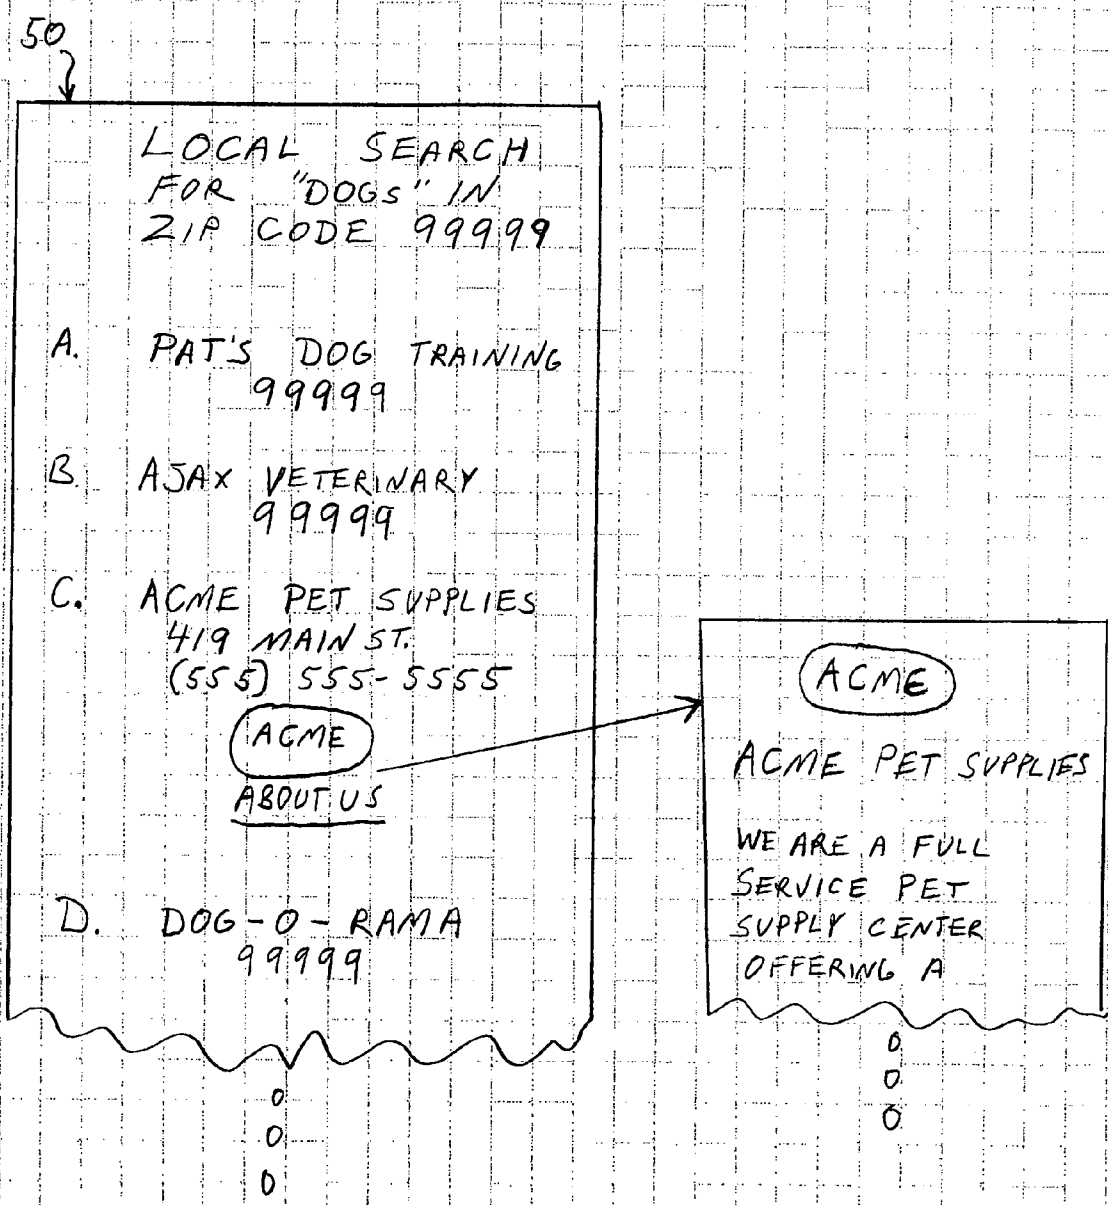 50
LOCAL SEARCH
FOR "DOGS" IN
ZIP CODE 99999
A. PAT'S DOG TRAINING
99999
B. AJAX VETERINARY
99999
C. ACME PET SUPPLIES
419 MAIN ST.
(555) 555-5555
ACME
ABOUT US
D. DOG-O-RAMA
99999
ACME
ACME PET SUPPLIES
WE ARE A FULL
SERVICE PET
SUPPLY CENTER
OFFERING A